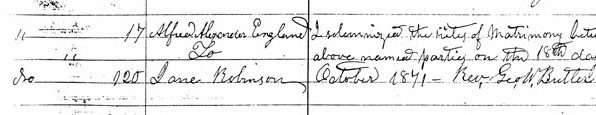 " 17 Alfred Alexander England I solemnized the rites of Matrimony betw
" To above named parties on the 18th da
No 120 Jane Robinson October 1871 - Rev. Geo. W. Butler